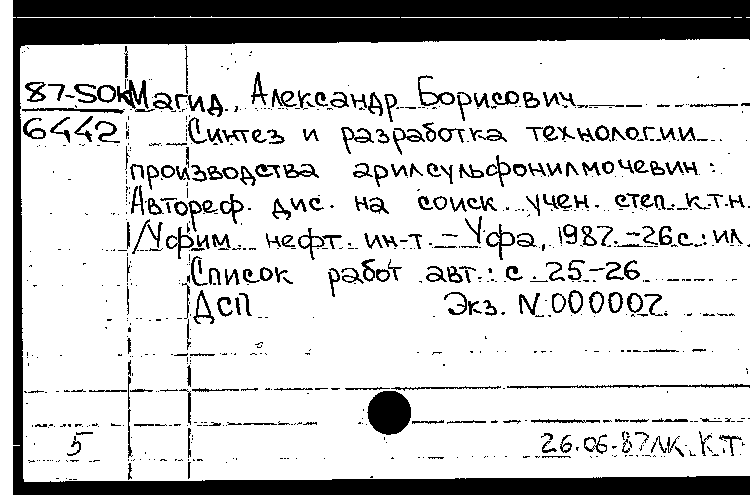 87-50К Магид, Александр Борисович
6442 Синтез и разработка технологии
производства арилсульфонилмочевин:
Автореф. дис. на соиск. учен. степ. к.т.н.
/Уфим. нефт. ин-т. – Уфа, 1987. – 26 с.: ил.
Список работ авт.: с. 25–26
ДСП Экз. N 000002
5 26.06.87 К.Т.